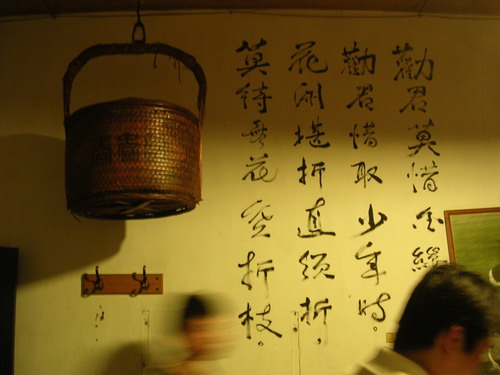 勸君莫惜金縷
勸君惜取少年時。
花開堪折直須折。
莫待無花空折枝。